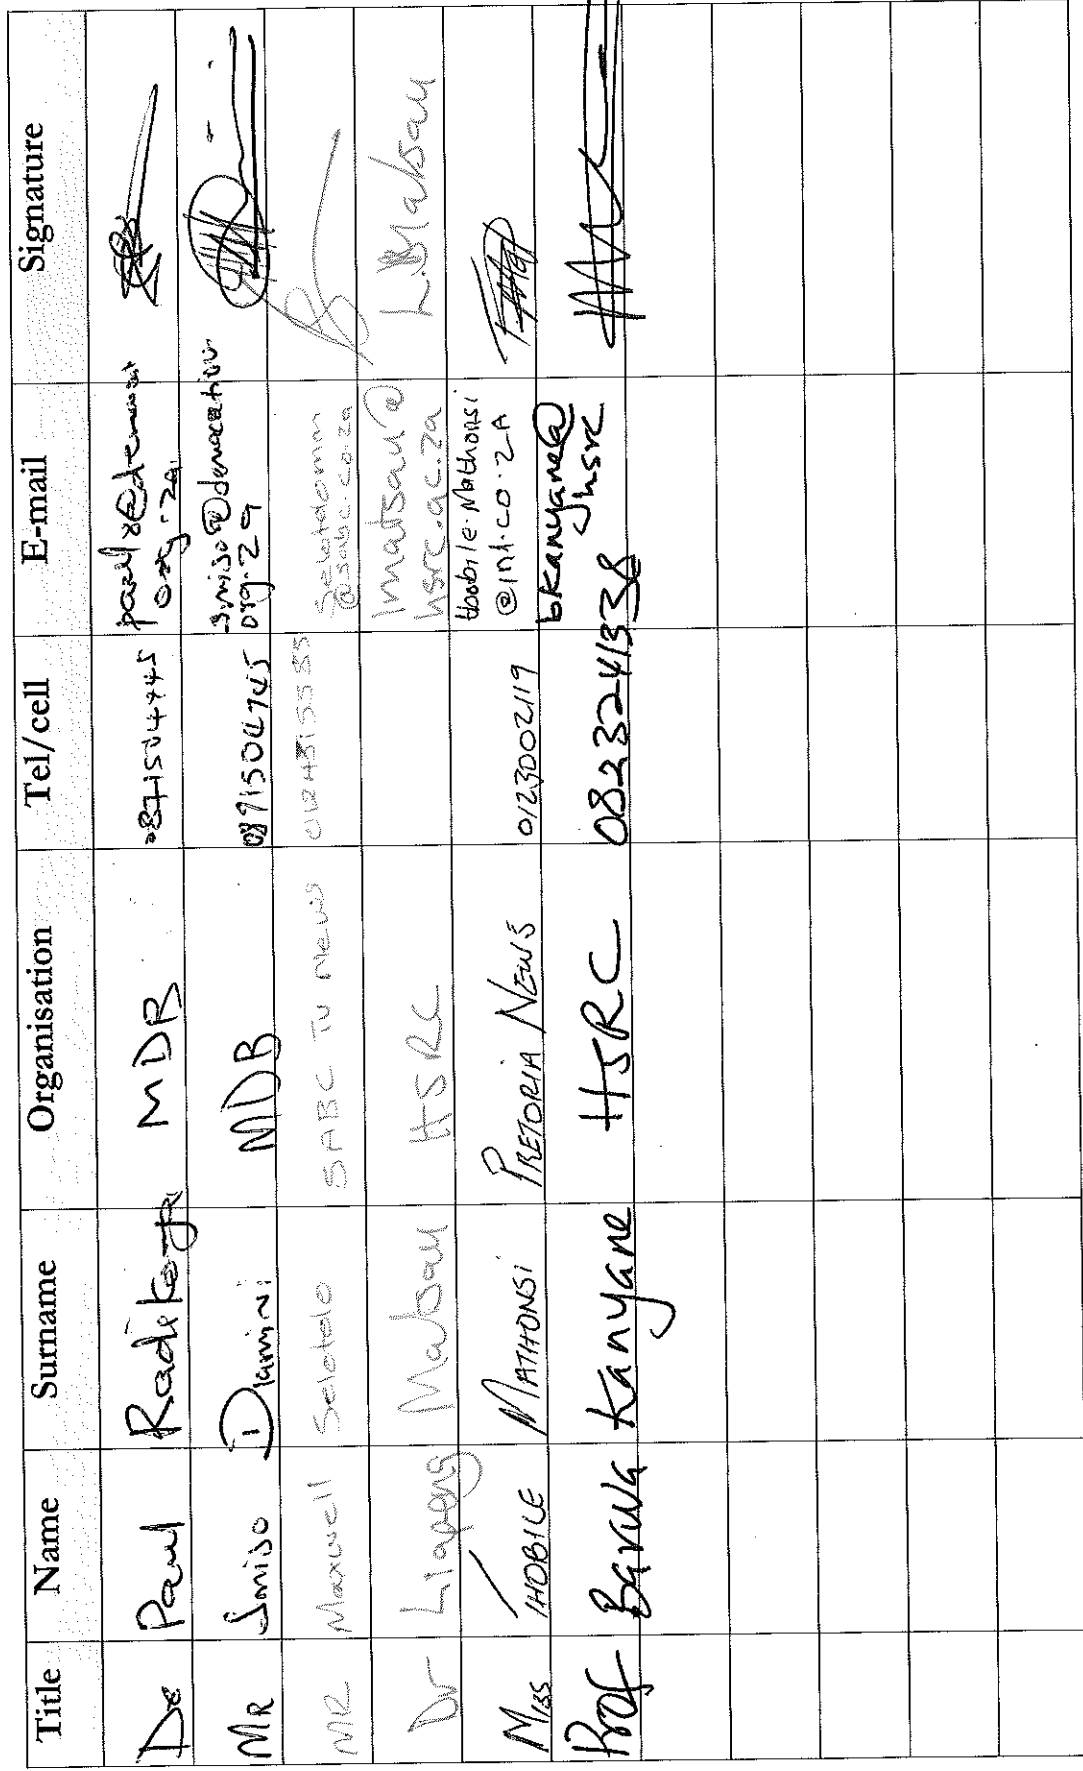 Title Name Surname Organisation Tel/cell E-mail Signature
Dr Paul MDB 0871504745
org.za
Mr Smiso Dlamini MDB 0871504745 smiso@demarcation
org.za
MR Maxwell Selotolo SABC TV News Selotolomm
@sabc.co.za
Dr Matsau HSRC lmatsau@
hsrc.ac.za L.Matsau
Miss THOBILE MATHONSI PRETORIA NEWS 0123002119 thobile.mathonsi
@inl.co.ZA
Prof Baruwa Kanyane HSRC 0823324133 bkanyane@
hsrc